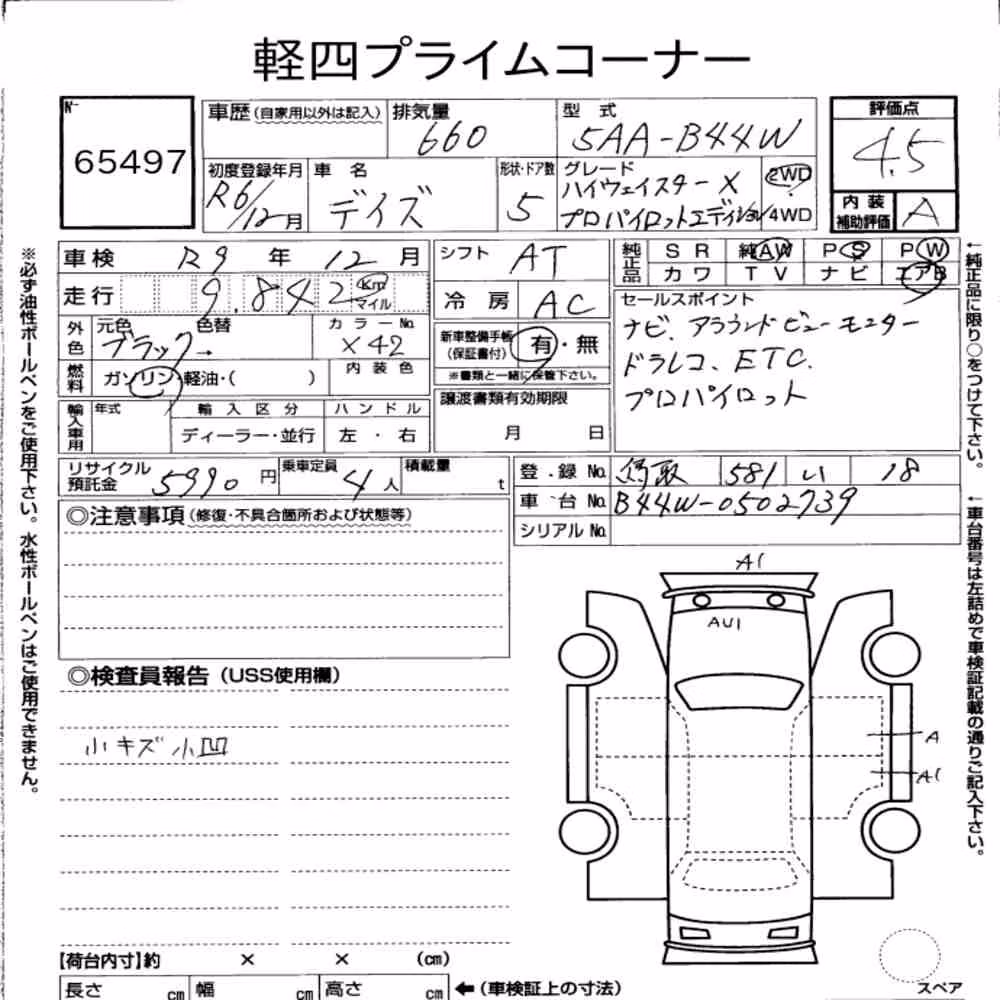 軽四プライムコーナー
№ 65497
車歴(自家用以外は記入) 排気量 660 型式 5AA-B44W
初度登録年月 R6/12月 車名 デイズ 形状・ドア数 5 グレード ハイウェイスターX プロパイロットエディション 2WD 4WD
評価点 4.5
内装補助評価 A
車検 R9年 12月 シフト AT
走行 9.842 Km マイル 冷房 AC
純正品 SR 純AW PS PW
カワ TV ナビ エアB
外色 元色 ブラック→ 色替 カラーNo. X42
新車整備手帳(保証書付) 有・無
※書類と一緒に保管下さい。
燃料 ガソリン・軽油・( ) 内装色
セールスポイント
ナビ、アラウンドビューモニター
ドラレコ、ETC.
プロパイロット
輸入車用 年式 輸入区分 ハンドル
ディーラー・並行 左・右
譲渡書類有効期限
月 日
リサイクル預託金 5990円 乗車定員 4人 積載量 t
登録No. 鳥取 581 い 18
車台No. B44W-0502739
シリアルNo.
◎注意事項(修復・不具合箇所および状態等)
◎検査員報告(USS使用欄)
小キズ小凹
A1
AU1
A
A1
【荷台内寸】約 × × (cm)
長さ cm 幅 cm 高さ cm ←(車検証上の寸法)
スペア
※必ず油性ボールペンをご使用下さい。水性ボールペンはご使用できません。
←純正品に限り○をつけて下さい。
←車台番号は左詰めで車検証記載の通りご記入下さい。